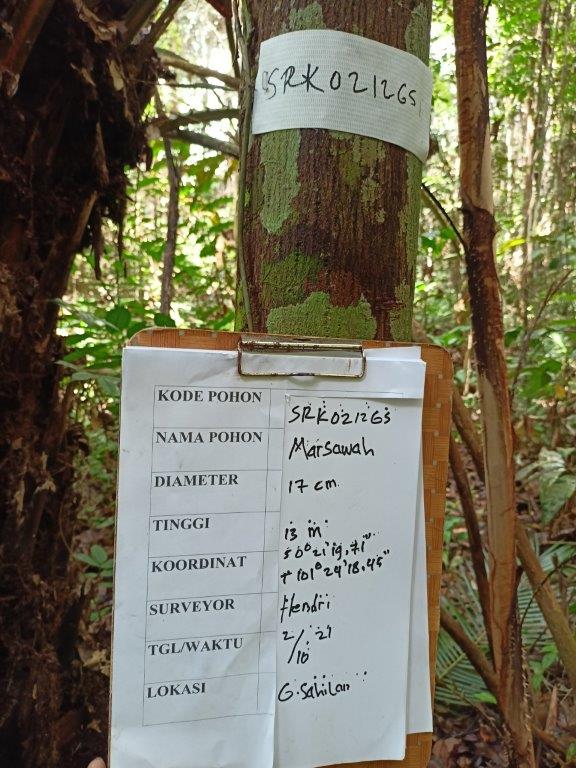 SRK0212GS
KODE POHON SRK0212GS
NAMA POHON Marsawah
DIAMETER 17 cm
TINGGI 13 m
KOORDINAT S 0° 21' 19,71"
T 101° 24' 18,45"
SURVEYOR Hendri
TGL/WAKTU 2/10 21
LOKASI G. Sahilan